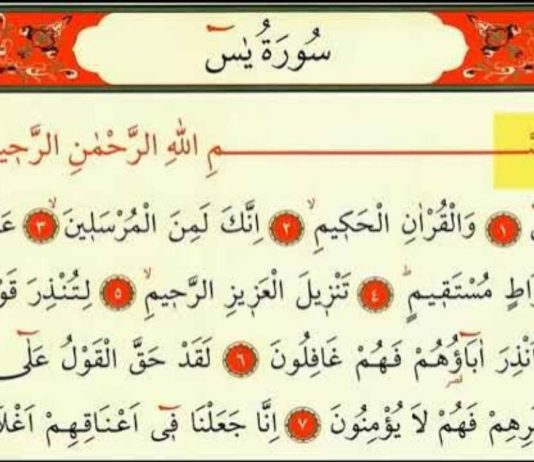 سُورَةُ يٰسٓ
ـــمِ اللهِ الرَّحْمٰنِ الرَّحٖيـ
﴿١﴾ وَالْقُرْاٰنِ الْحَكٖيمِۙ ﴿٢﴾ اِنَّكَ لَمِنَ الْمُرْسَلٖينَۙ ﴿٣﴾ عَـ
ـرَاطٍ مُسْتَقٖيمٍۜ ﴿٤﴾ تَنْزٖيلَ الْعَزٖيزِ الرَّحٖيمِۙ ﴿٥﴾ لِتُنْذِرَ قَوْ
اُنْذِرَ اٰبَٓاؤُهُمْ فَهُمْ غَافِلُونَ ﴿٦﴾ لَقَدْ حَقَّ الْقَوْلُ عَلٰٓى
ـرِهِمْ فَهُمْ لَا يُؤْمِنُونَ ﴿٧﴾ اِنَّا جَعَلْنَا فٖٓى اَعْنَاقِهِمْ اَغْلَا